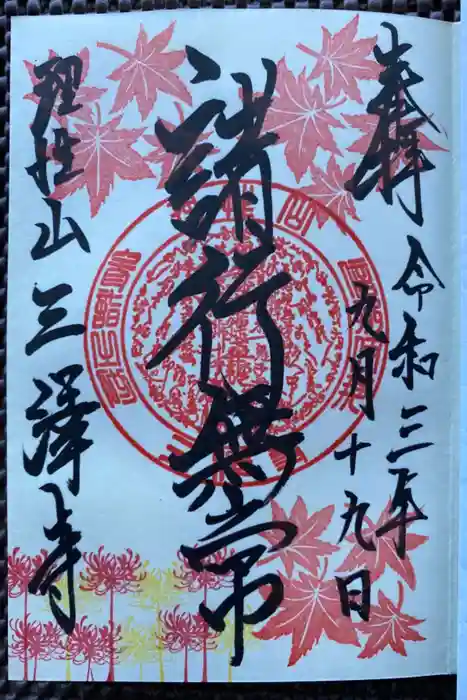 奉拝
令和三年
九月十九日
諸行無常
理性山三澤寺